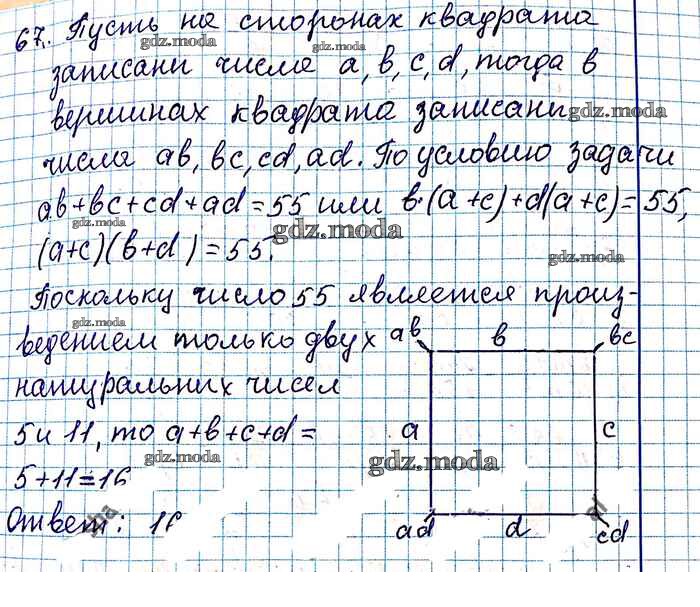 67. Пусть на сторонах квадрата
gdz.moda gdz.moda
записани числа a, b, c, d, тогда в
вершинах квадрата записани
gdz.moda
числа ab, bc, cd, ad. По условию задачи
gdz.moda
ab+bc+cd+ad=55 или b·(a+c)+d(a+c)=55,
gdz.moda gdz.moda
(a+c)(b+d)=55.
gdz.moda
Поскольку число 55 является произ-
gdz.moda
ведением только двух
натуральних чисел
5 и 11, то a+b+c+d=
gdz.moda
5+11=16
Ответ: 16
ab b bc
a c
gdz.moda
ad d cd